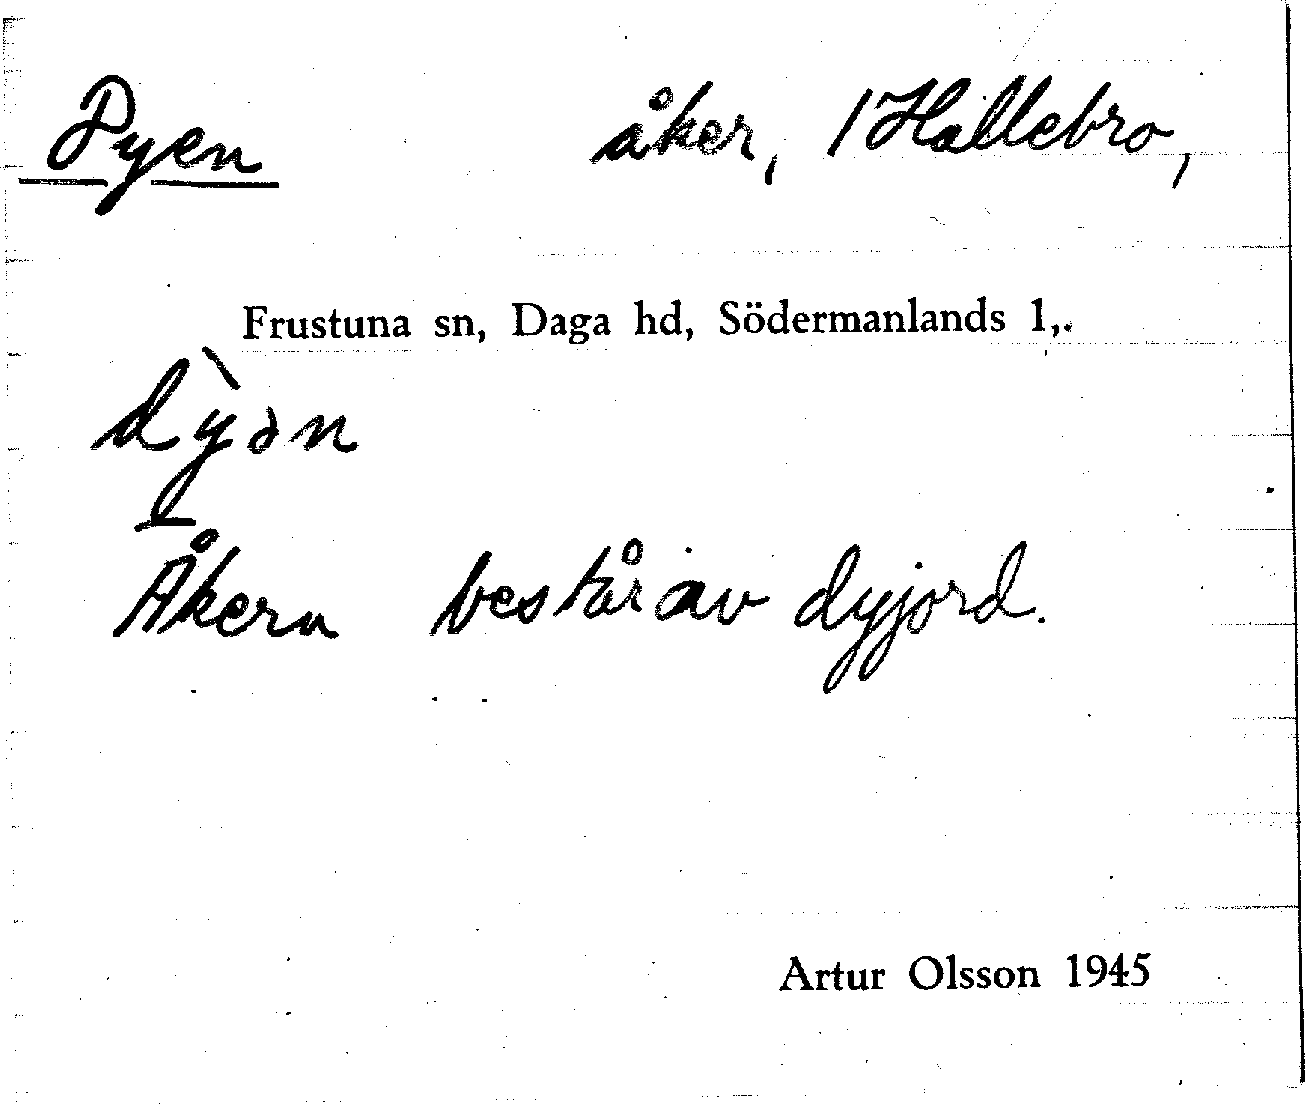 Dyen åker, 1 Hållebro,
Frustuna sn, Daga hd, Södermanlands l,.
dỳən
Åkern består av dyjord.
Artur Olsson 1945